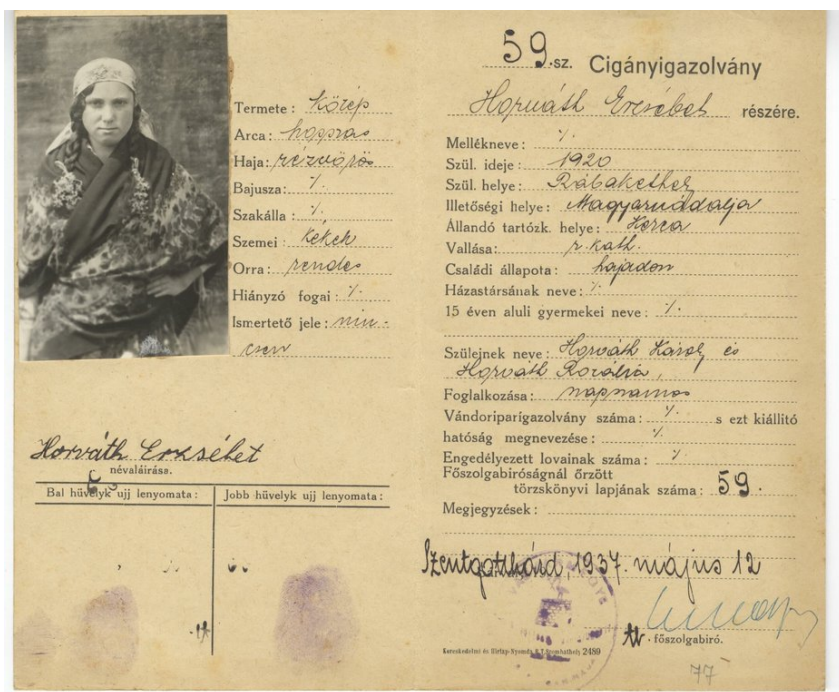 Termete: közép
Arca: hosszas
Haja: rézvörös
Bajusza: ·/.
Szakálla: ·/.
Szemei: kékek
Orra: rendes
Hiányzó fogai: ·/.
Ismertető jele: nin-
csen
Horváth Erzsébet
névaláírása.
Bal hüvelyk ujj lenyomata: Jobb hüvelyk ujj lenyomata:
59.sz. Cigányigazolvány
Horváth Erzsébet részére.
Mellékneve: ·/.
Szül. ideje: 1920
Szül. helye: Rábakethely
Illetőségi helye: Magyarnádalja
Állandó tartózk. helye: Horca
Vallása: r. kath.
Családi állapota: hajadon
Házastársának neve: ·/.
15 éven aluli gyermekei neve: ·/.
Szülejnek neve: Horváth Károly és
Horváth Rozália,
Foglalkozása: napszamos
Vándoriparigazolvány száma: ·/. s ezt kiállító
hatóság megnevezése: ·/.
Engedélyezett lovainak száma: ·/.
Főszolgabiróságnál őrzött
törzskönyvi lapjának száma: 59.
Megjegyzések:
Szentgotthárd, 1937. május 12
főszolgabiró.
Kereskedelmi és Hirlap-Nyomda R.T. Szombathely 2489
77